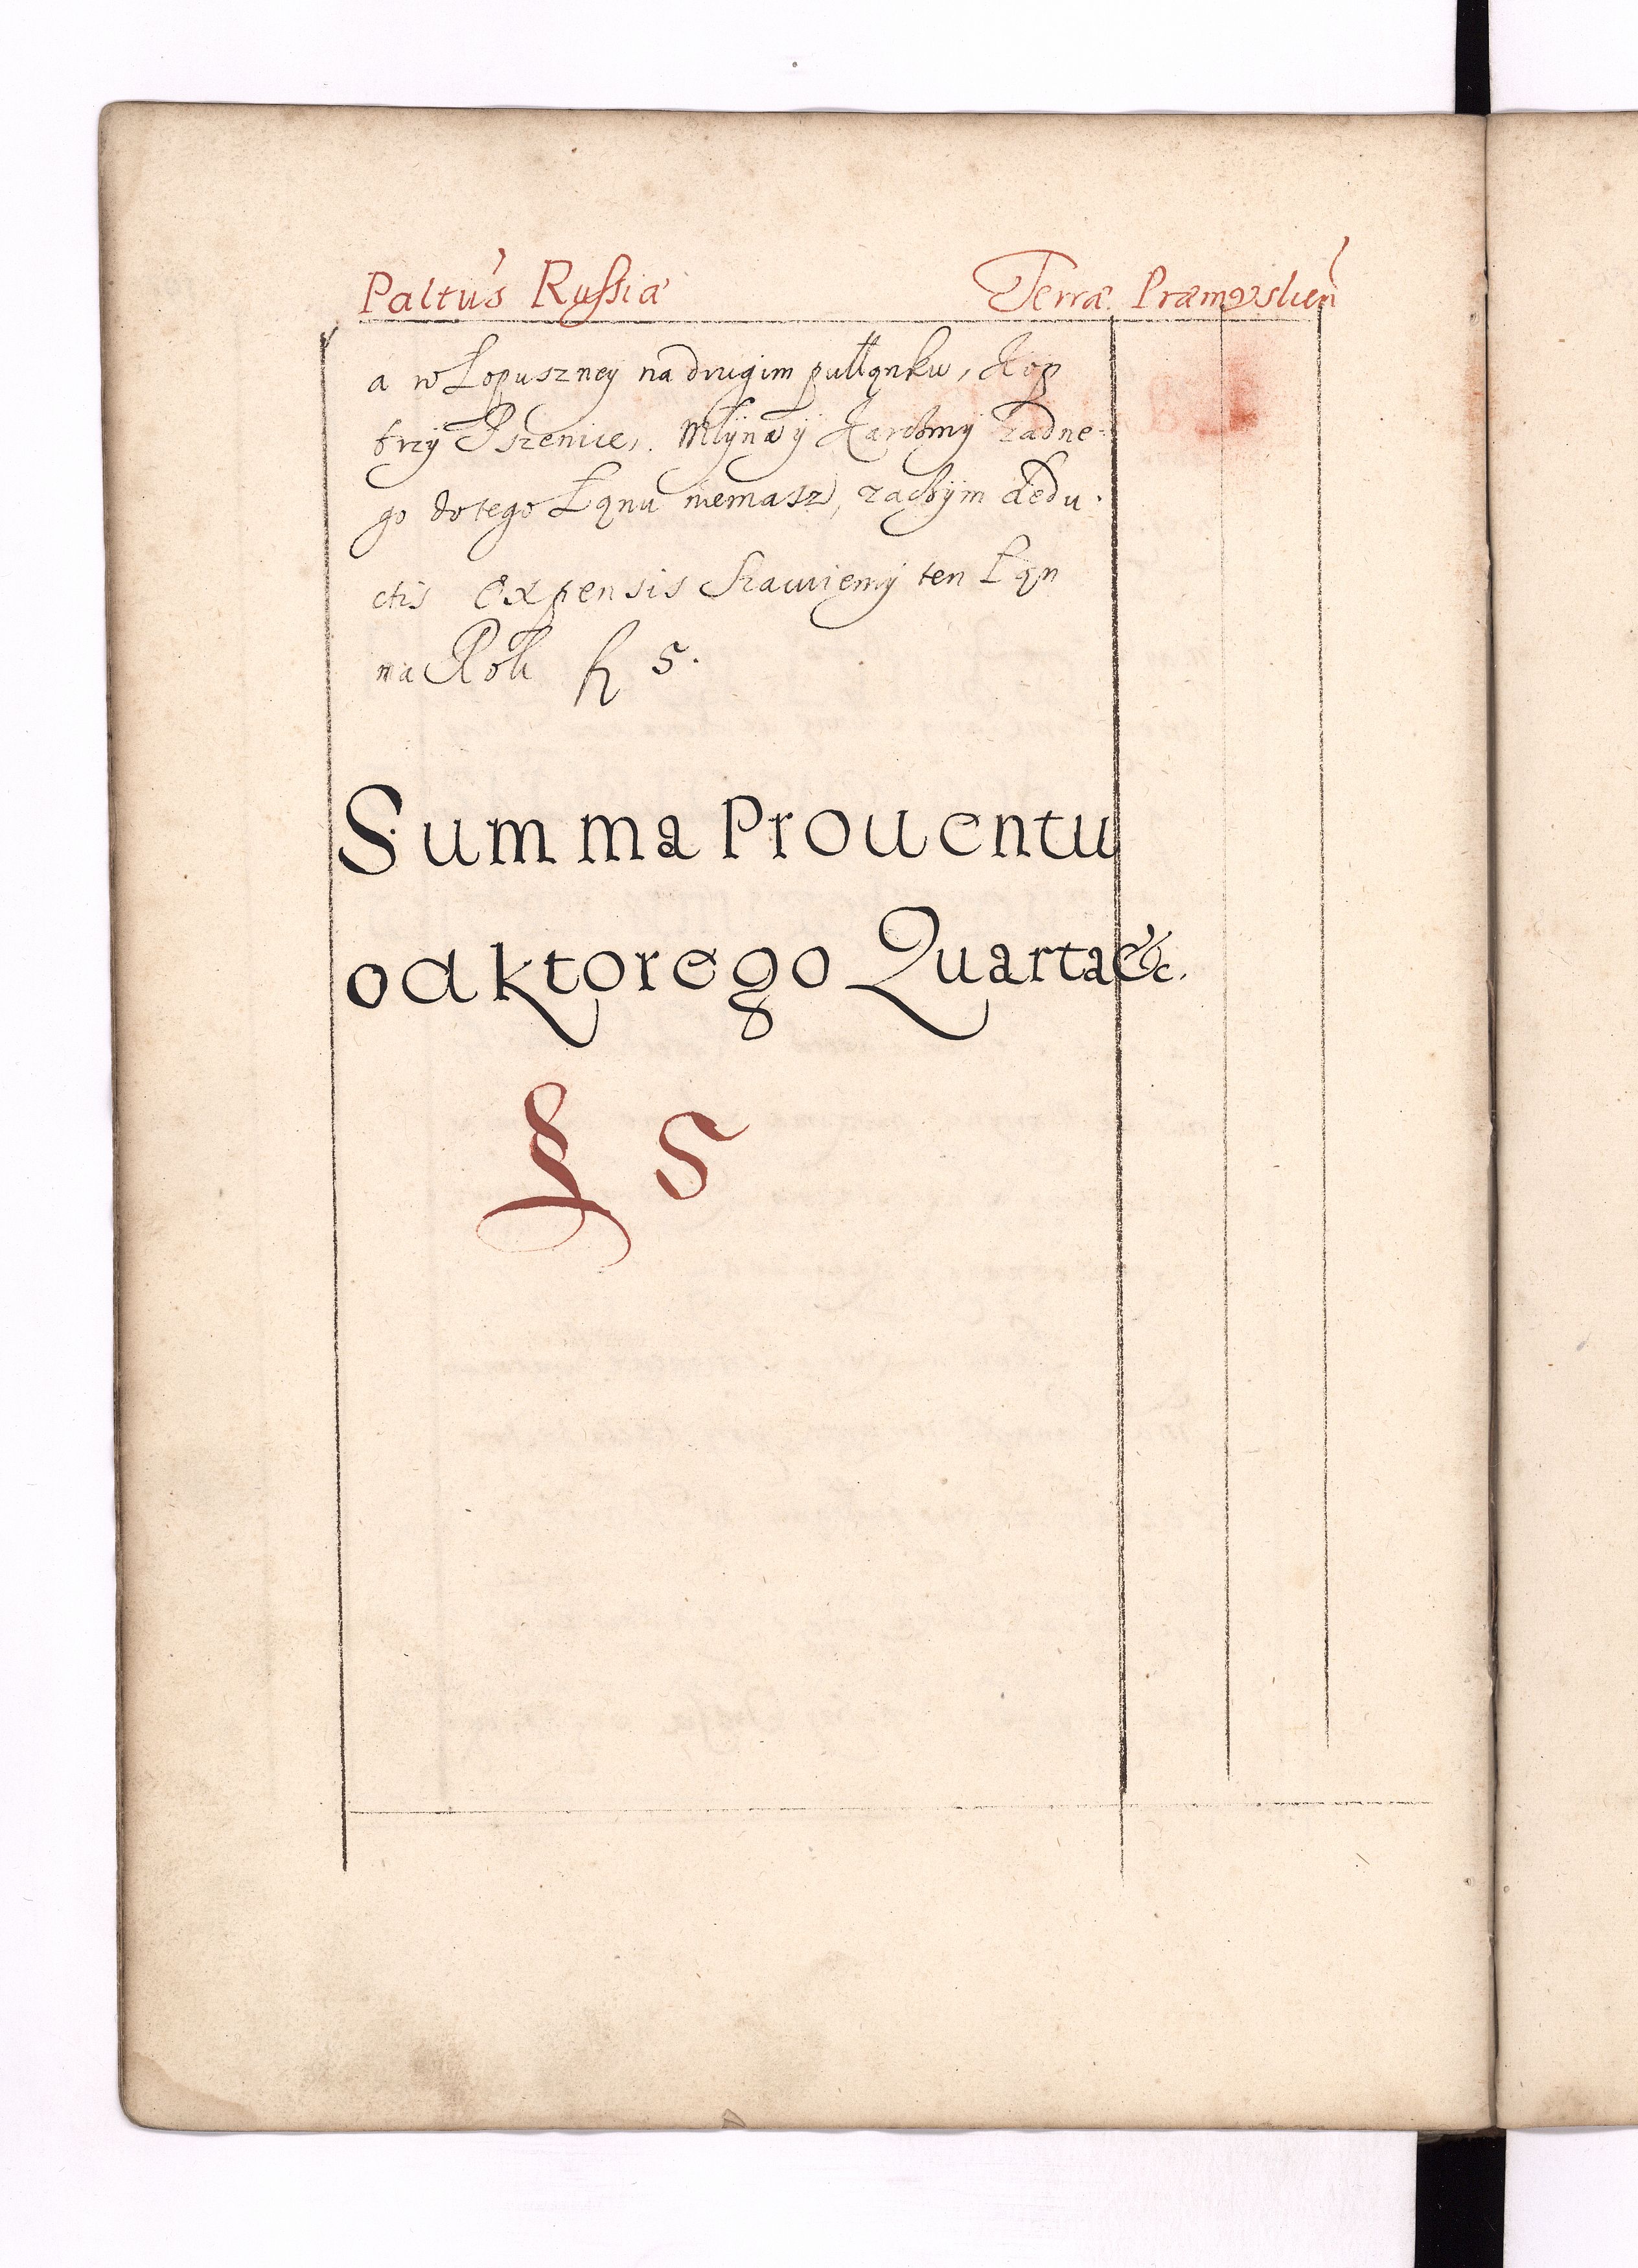 Paltus Russiæ Terræ Præmysluen
a w Łopuszney na drugim pułłąnku, Kop
trzy Pszenice, Młyna y Karchmy żadne=
go do tego Łąnu niemasz, zachym dedu.
ctis Expensis Stawiemy ten Łąn
na Rok fl 5.
Summa Prouentu
od ktorego Quarta &c.
fl 5